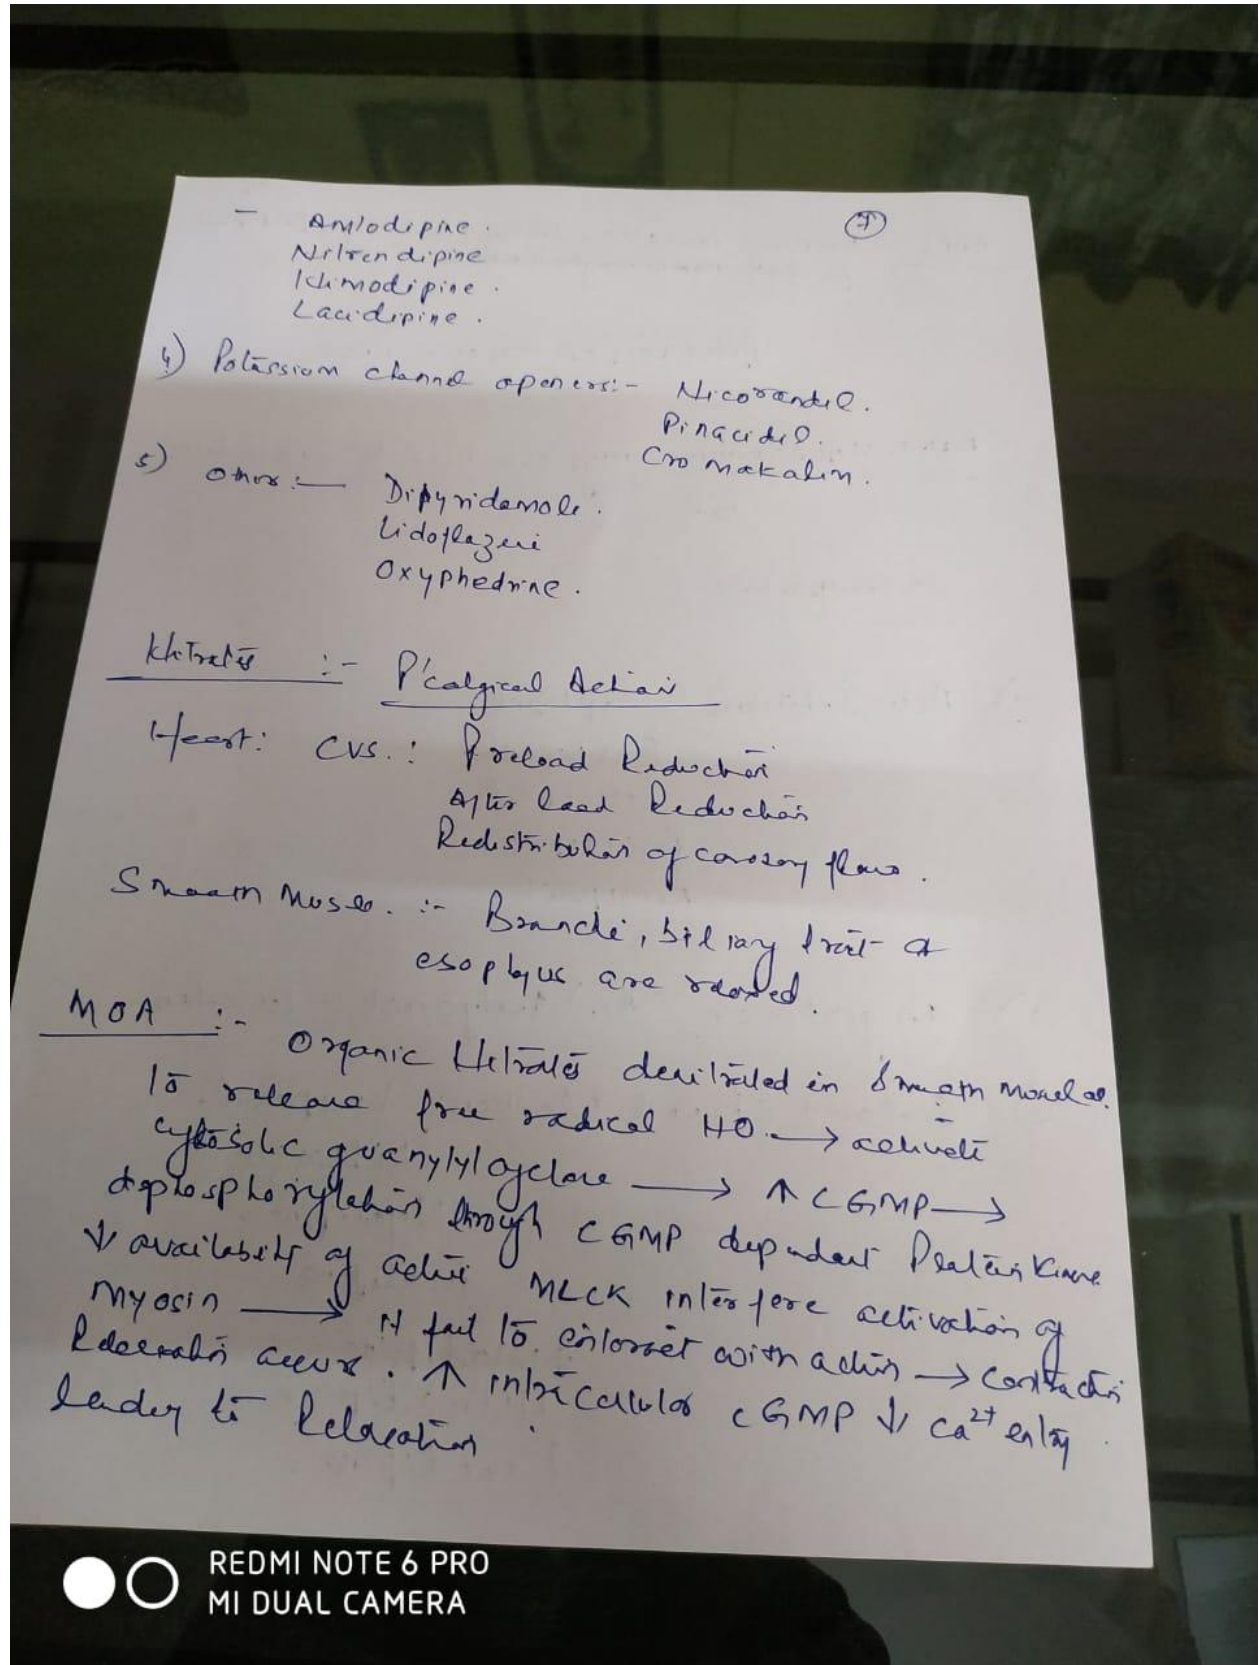 - Amlodipine. 7
Nitrendipine
Nimodipine.
Lacidipine.
4) Potassium channel openers:- Nicorandil.
Pinacidil.
Cromakalin.
5) Others:- Dipyridamole.
Lidoflazine
Oxyphedrine.
Nitrates :- P'calgical Action
Heart: CVS.: Preload Reduction
After load Reduction
Redistribution of coronary flow.
Smooth Muscle. :- Bronchi, biliary tract &
esophgus are relaxed.
MOA :- Organic Nitrates denitrated in smooth muscle
to release free radical NO. → activate
cytosolic guanylylcyclase → ↑ CGMP →
dephosphorylation through CGMP dependent Protein Kinase
↓ availability of active MLCK interfere activation of
Myosin → it fail to interact with actin → contraction
Relaxation occurs. ↑ intracellular cGMP ↓ Ca2+ entry.
leading to Relaxation
REDMI NOTE 6 PRO
MI DUAL CAMERA